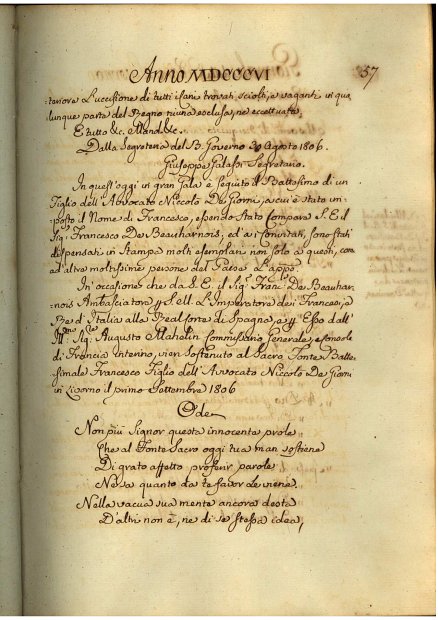 Anno MDCCCVI 57
teriore l'uccisione di tutti i cani trovati sciolti, e vaganti in qua
lunque parte del Regno niuna esclusa, ne eccettuata,
E tutto &c. Mand. &c.
Dalla Segreteria del B. Governo 30 Agosto 1806.
Giuseppe Falassi Segretario.
In quest'oggi in gran Gala è seguito il Battesimo di un
Figlio dell'Avvocato Niccolò De Giorni, a cui è stato im-
posto il Nome di Francesco, essendo stato Compare S. E. il
Sig.r Francesco De Beauharnois, ed ai Convitati, sono stati
dispensati in stampa molti esemplari non solo a questi, con
ad altre moltissime persone del Paese
In occasione che da S. E. il Sig.r Franc.o De Beauhar-
nois Ambasciatore dell'Imperatore dei Francesi, e
Re d'Italia alla Real Corte di Spagna, e Esso dall'
Ill.mo Sig.re Augusto Mahelin Commissario Generale, e Console
di Francia Interino, vien sostenuto al Sacro Fonte Batte-
simale Francesco Figlio dell'Avvocato Niccolò De Giorni
in Livorno il primo Settembre 1806
Ode
Non più Signor questa innocente prole
Che al Fonte Sacro oggi tua man sostiene
Di grato affetto proferir parole
Ne sa quanto da te favor le viene.
Nella vacua sua mente ancora desta
D'altri non è, ne di se stessa idea,